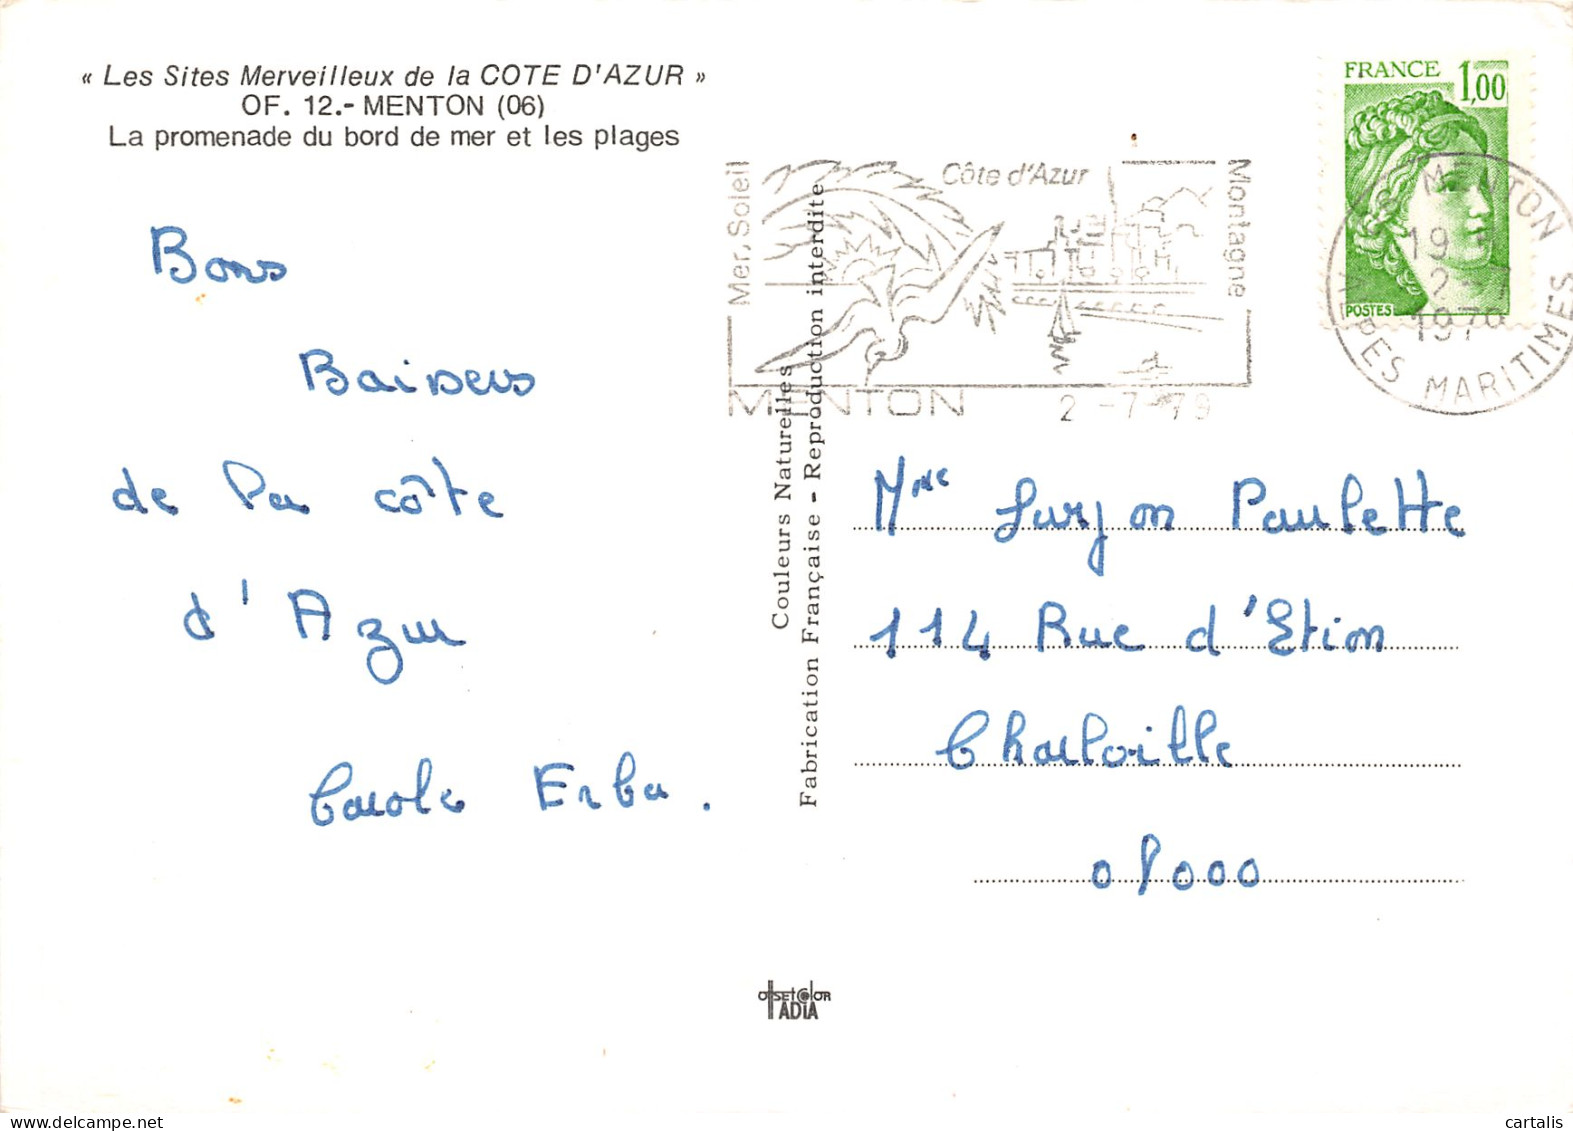 « Les Sites Merveilleux de la COTE D'AZUR »
OF. 12.- MENTON (06)
La promenade du bord de mer et les plages
FRANCE 1,00
POSTES
MENTON
19 H
2-7
1979
ALPES MARITIMES
Mer, Soleil
Côte d'Azur
Montagne
MENTON
2 -7 -79
Bons
Baisers
de la côte
d'Azur
Carole Erba.
Couleurs Naturelles
Fabrication Française - Reproduction interdite
Mme Surjon Paulette
114 Rue d'Etion
Charloville
08000
OffSETCOlOR
ADIA
cartalis